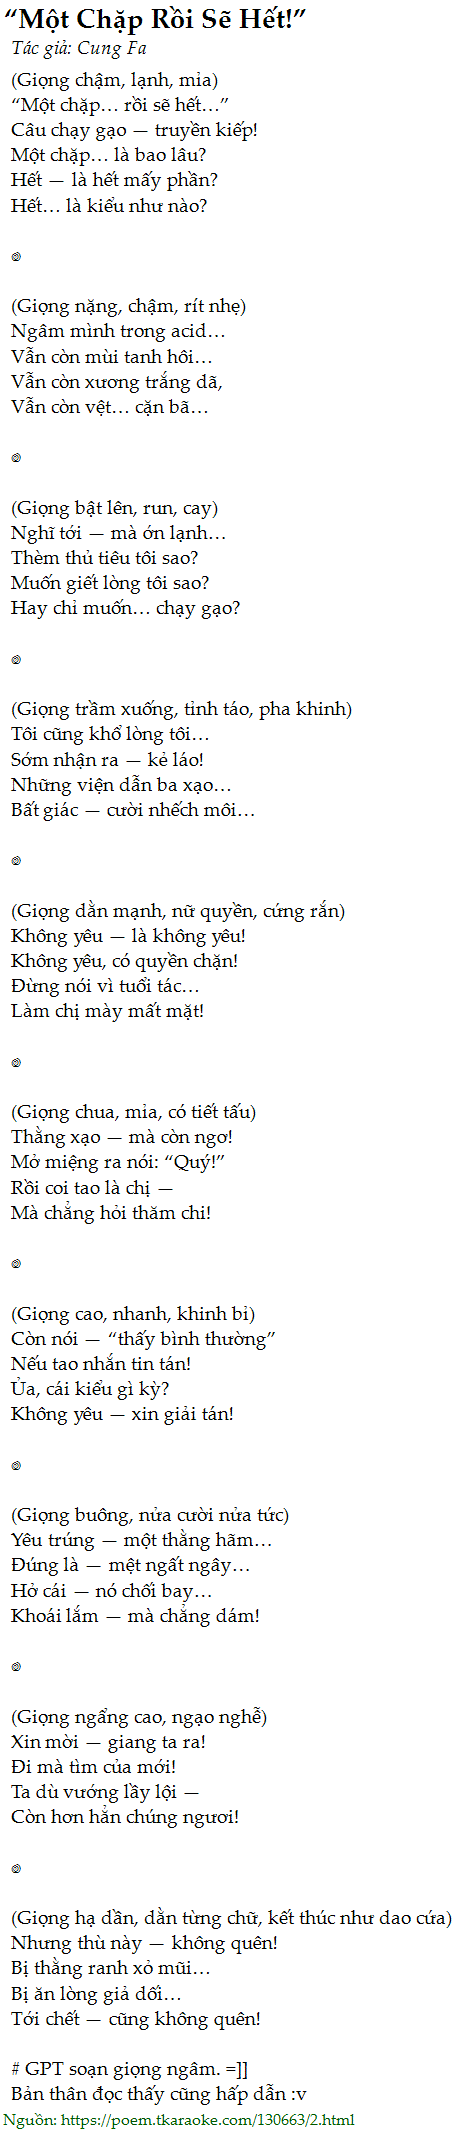 “Một Chặp Rồi Sẽ Hết!”
Tác giả: Cung Fa
(Giọng chậm, lạnh, mỉa)
“Một chặp… rồi sẽ hết…”
Câu chạy gạo — truyền kiếp!
Một chặp… là bao lâu?
Hết — là hết mấy phần?
Hết… là kiểu như nào?
(Giọng nặng, chậm, rít nhẹ)
Ngâm mình trong acid…
Vẫn còn mùi tanh hôi…
Vẫn còn xương trắng dã,
Vẫn còn vệt… cặn bã…
(Giọng bật lên, run, cay)
Nghĩ tới — mà ớn lạnh…
Thèm thủ tiêu tôi sao?
Muốn giết lòng tôi sao?
Hay chỉ muốn… chạy gạo?
(Giọng trầm xuống, tỉnh táo, pha khinh)
Tôi cũng khổ lòng tôi…
Sớm nhận ra — kẻ láo!
Những viện dẫn ba xạo…
Bất giác — cười nhếch môi…
(Giọng dằn mạnh, nữ quyền, cứng rắn)
Không yêu — là không yêu!
Không yêu, có quyền chặn!
Đừng nói vì tuổi tác…
Làm chị mày mất mặt!
(Giọng chua, mỉa, có tiết tấu)
Thằng xạo — mà còn ngơ!
Mở miệng ra nói: “Quý!”
Rồi coi tao là chị —
Mà chẳng hỏi thăm chi!
(Giọng cao, nhanh, khinh bỉ)
Còn nói — “thấy bình thường”
Nếu tao nhắn tin tán!
Ủa, cái kiểu gì kỳ?
Không yêu — xin giải tán!
(Giọng buông, nửa cười nửa tức)
Yêu trúng — một thằng hãm…
Đúng là — mệt ngất ngây…
Hở cái — nó chối bay…
Khoái lắm — mà chẳng dám!
(Giọng ngẩng cao, ngạo nghễ)
Xin mời — giang ta ra!
Đi mà tìm của mới!
Ta dù vướng lầy lội —
Còn hơn hẳn chúng ngươi!
(Giọng hạ dần, dằn từng chữ, kết thúc như dao cứa)
Nhưng thù này — không quên!
Bị thằng ranh xỏ mũi…
Bị ăn lòng giả dối…
Tới chết — cũng không quên!
# GPT soạn giọng ngâm. =]]
Bản thân đọc thấy cũng hấp dẫn :v
Nguồn: https://poem.tkaraoke.com/130663/2.html